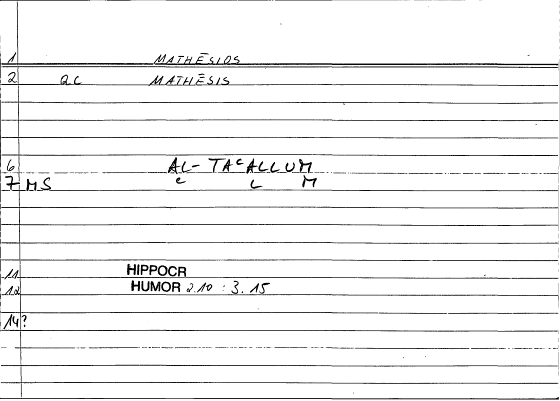 1 MATHĒSIOS
2 QC MATHĒSIS
6 AL-TAᶜALLUM
7 MS C L M
11 HIPPOCR
12 HUMOR 2.10 : 3.15
14?